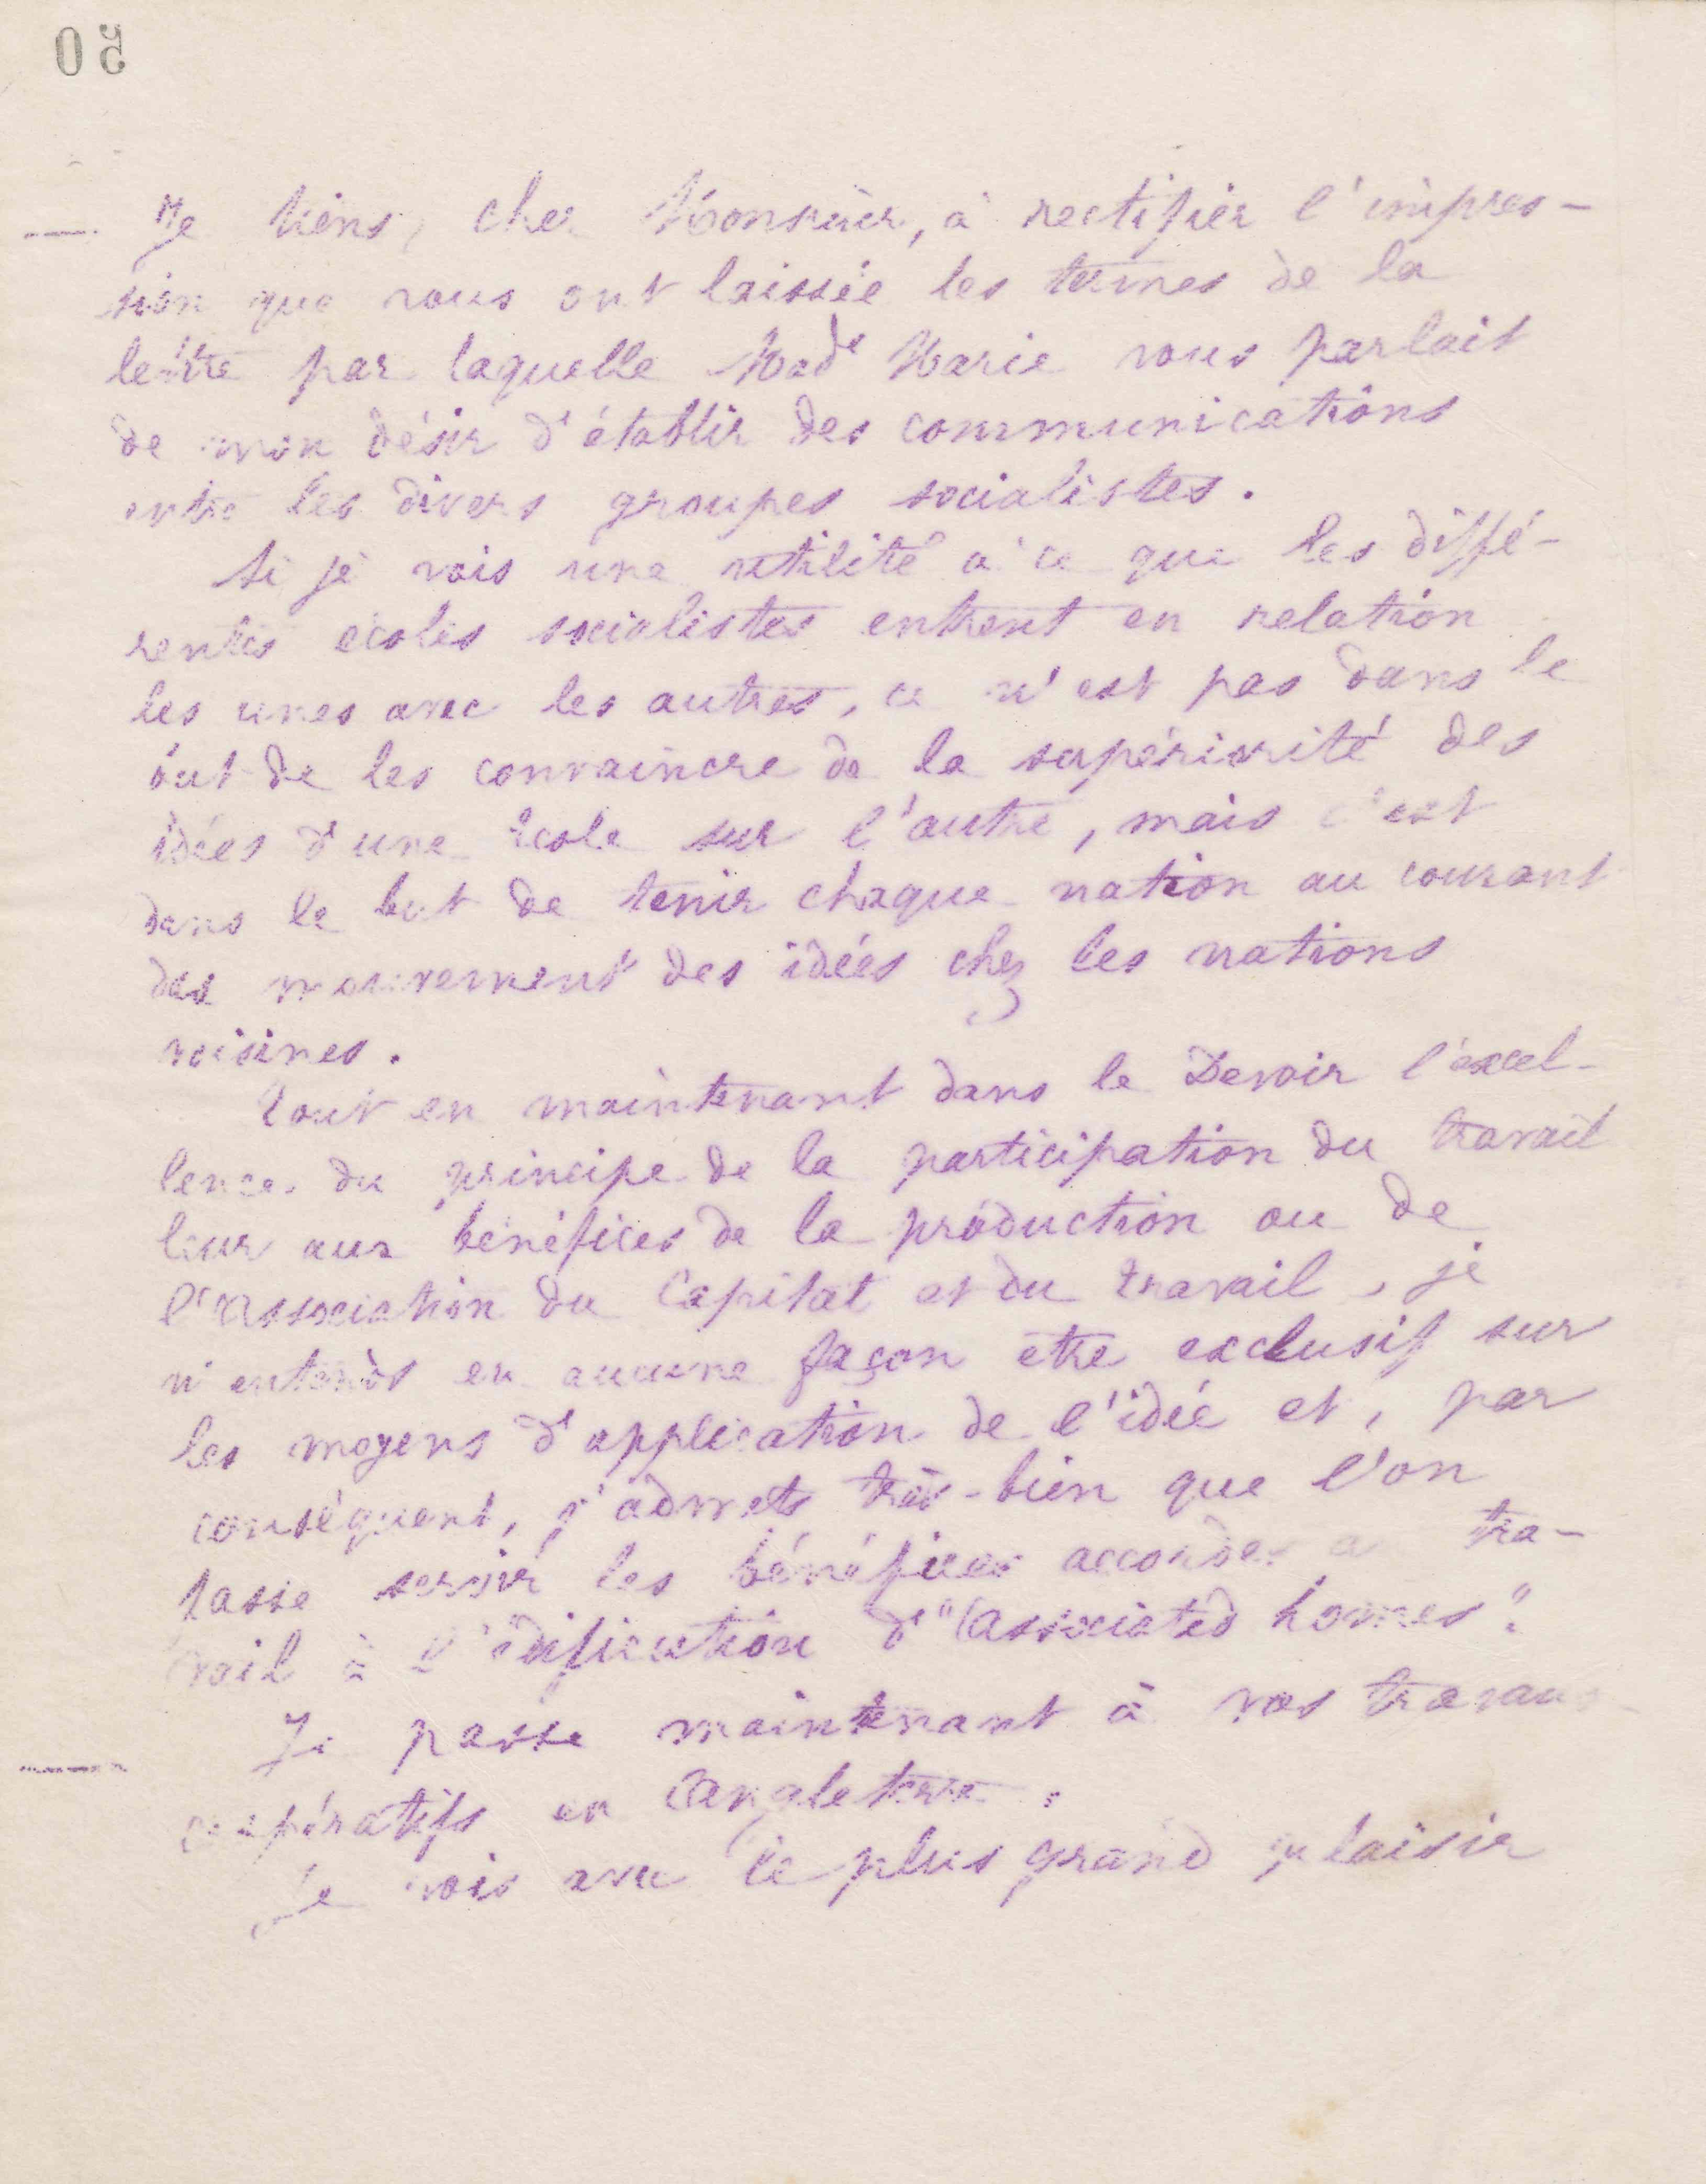 50
Je tiens, cher Monsieur, à rectifier l'impres-
sion que vous ont laissée les termes de la
lettre par laquelle Made Marie vous parlait
de mon désir d'établir des communications
entre les divers groupes socialistes.
Si je vois une utilité à ce que les diffé-
rentes écoles socialistes entrent en relation
les unes avec les autres, ce n'est pas dans le
but de les convaincre de la supériorité des
idées d'une école sur l'autre, mais c'est
dans le but de tenir chaque nation au courant
des mouvement des idées chez les nations
voisines.
Tout en maintenant dans le Devoir l'excel-
lence du principe de la participation du travail
leur aux bénéfices de la production ou de
l'Association du Capital et du travail, je
n'entends en aucune façon être exclusif sur
les moyens d'application de l'idée et, par
conséquent, j'admets très-bien que l'on
fasse servir les bénéfices accordés au tra-
vail à l'édification d'"Associated homes".
Je passe maintenant à vos travaux
coopératifs en Angleterre.
Je vois avec le plus grand plaisir